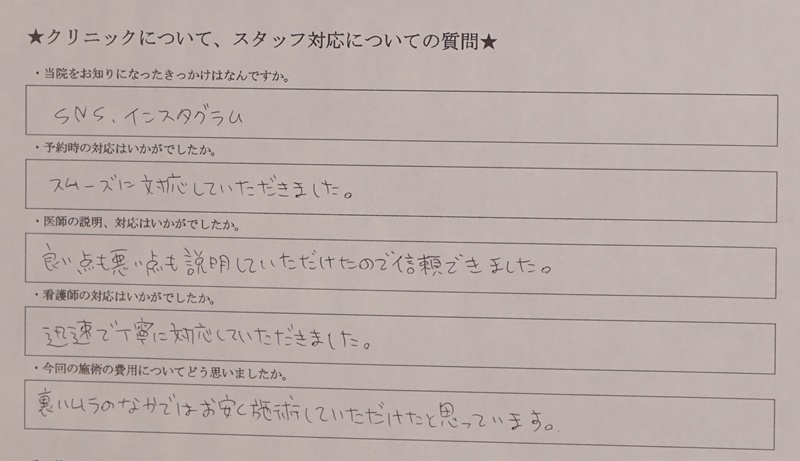 ★クリニックについて、スタッフ対応についての質問★
・当院をお知りになったきっかけはなんですか。
SNS、インスタグラム
・予約時の対応はいかがでしたか。
スムーズに対応していただきました。
・医師の説明、対応はいかがでしたか。
良い点も悪い点も説明していただけたので信頼できました。
・看護師の対応はいかがでしたか。
迅速で丁寧に対応していただきました。
・今回の施術の費用についてどう思いましたか。
裏ハムラのなかではお安く施術していただけたと思っています。